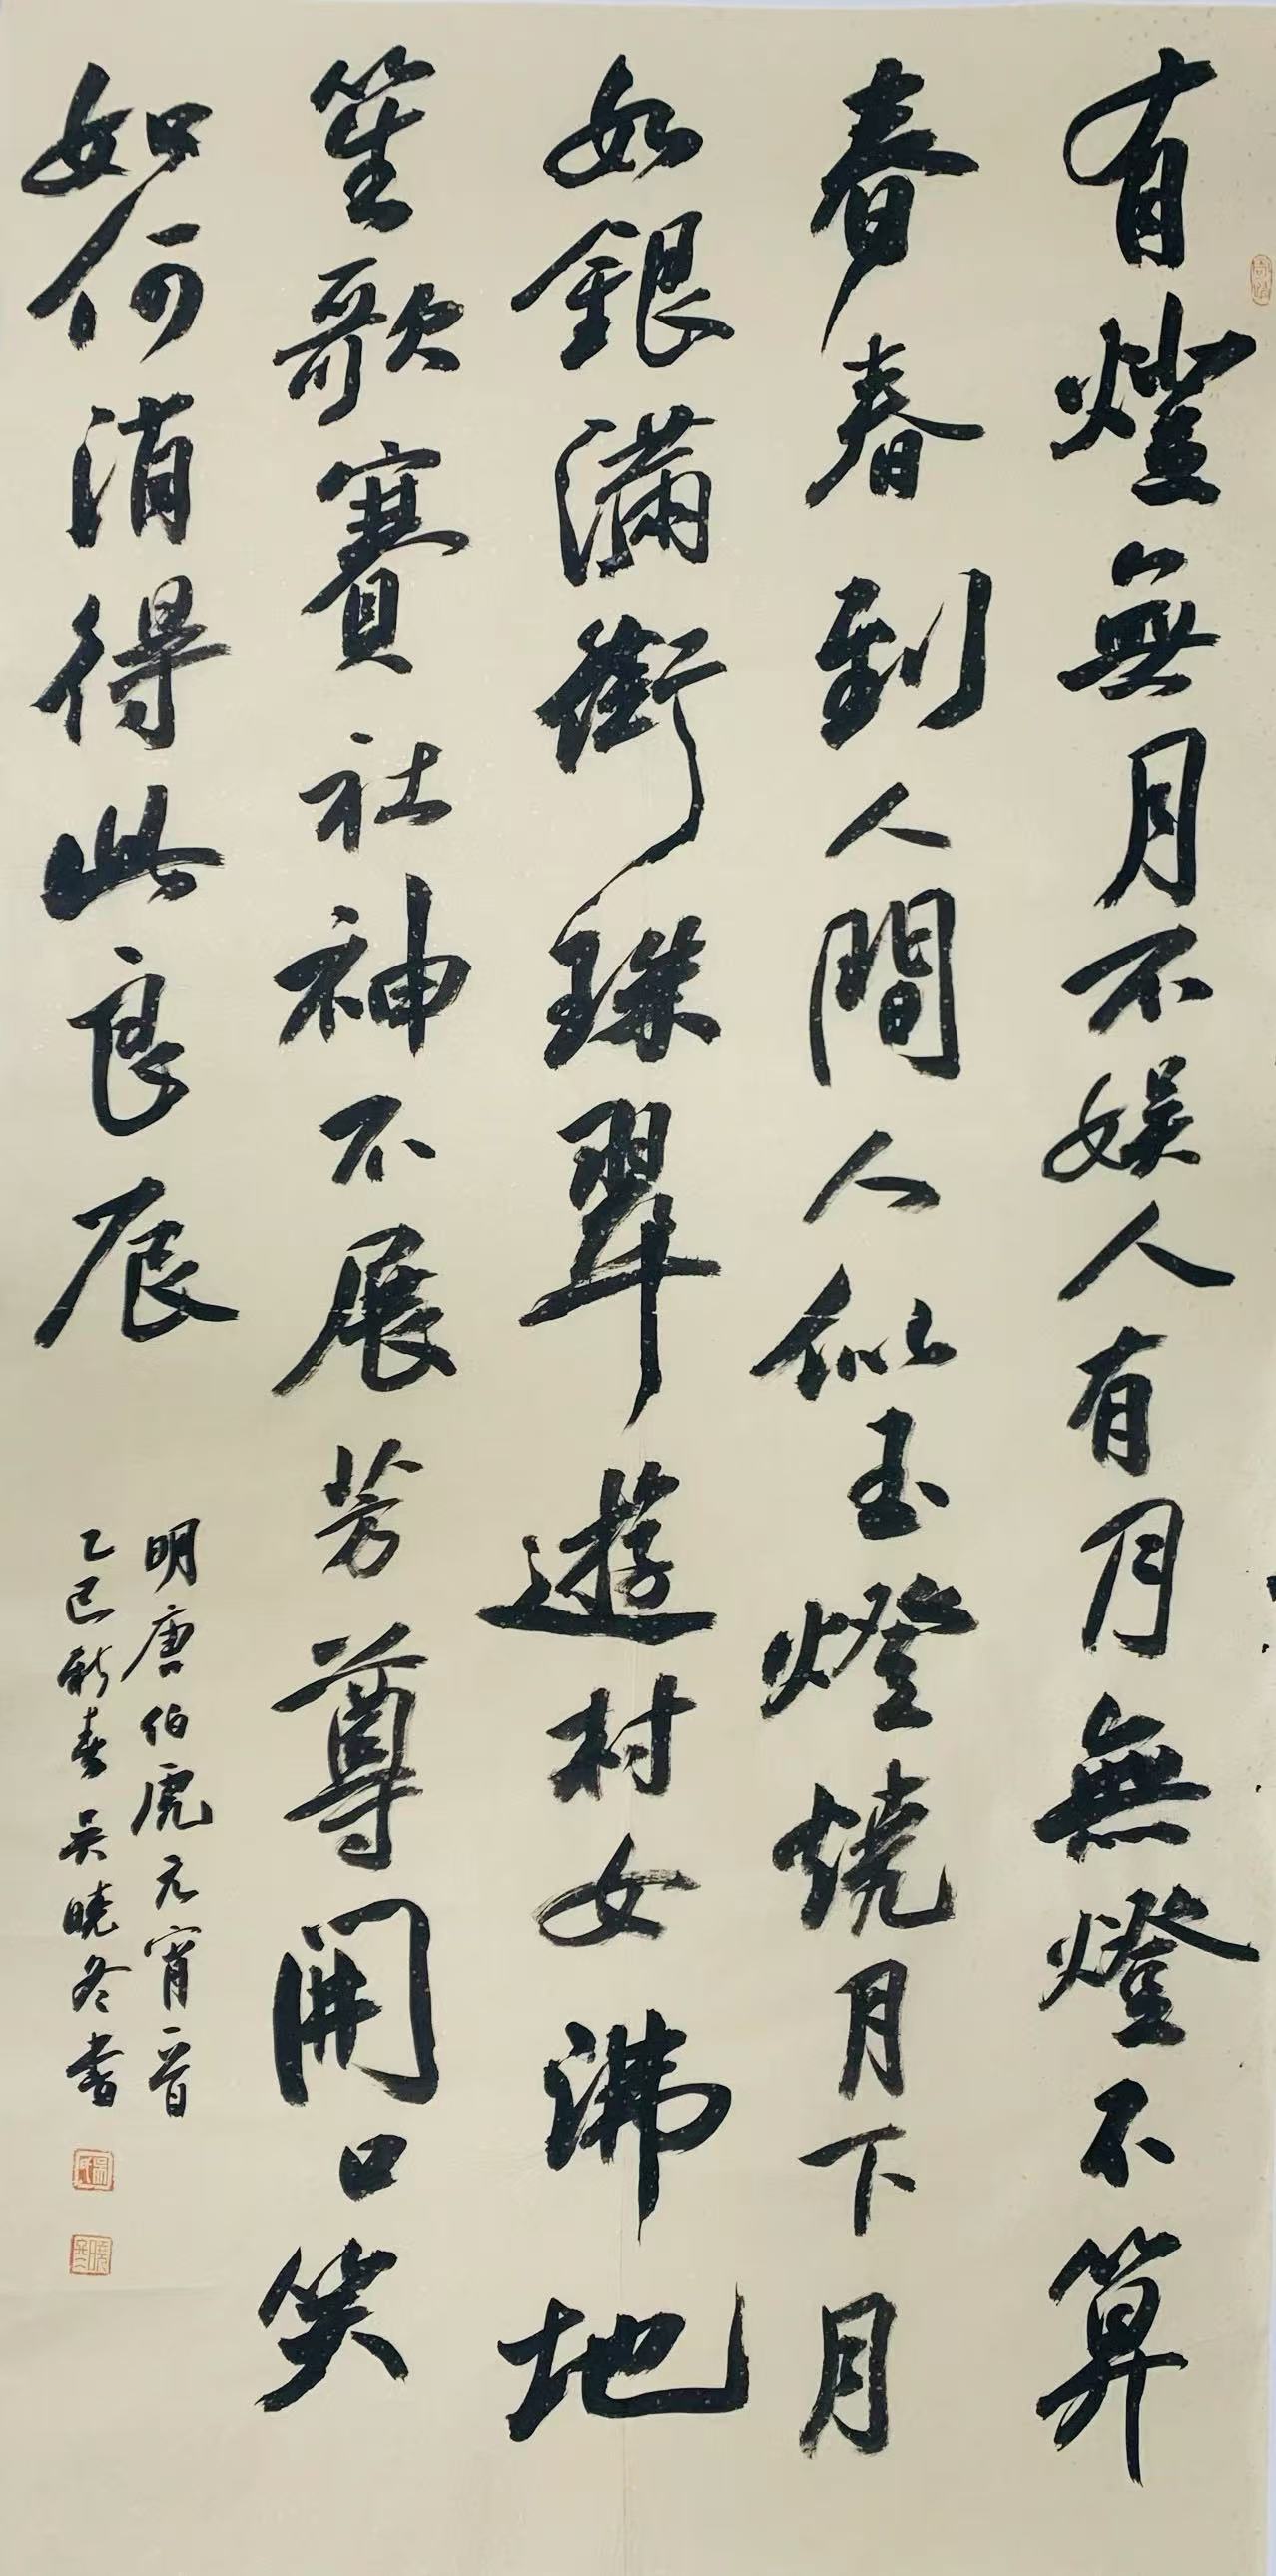 有燈無月不娱人有月無燈不算
春春到人間人似玉燈燒月下月
如銀滿街珠翠遊村女沸地
笙歌賽社神不展芳尊開口笑
如何消得此良辰
明唐伯虎元宵一首
乙巳新春吴曉冬書